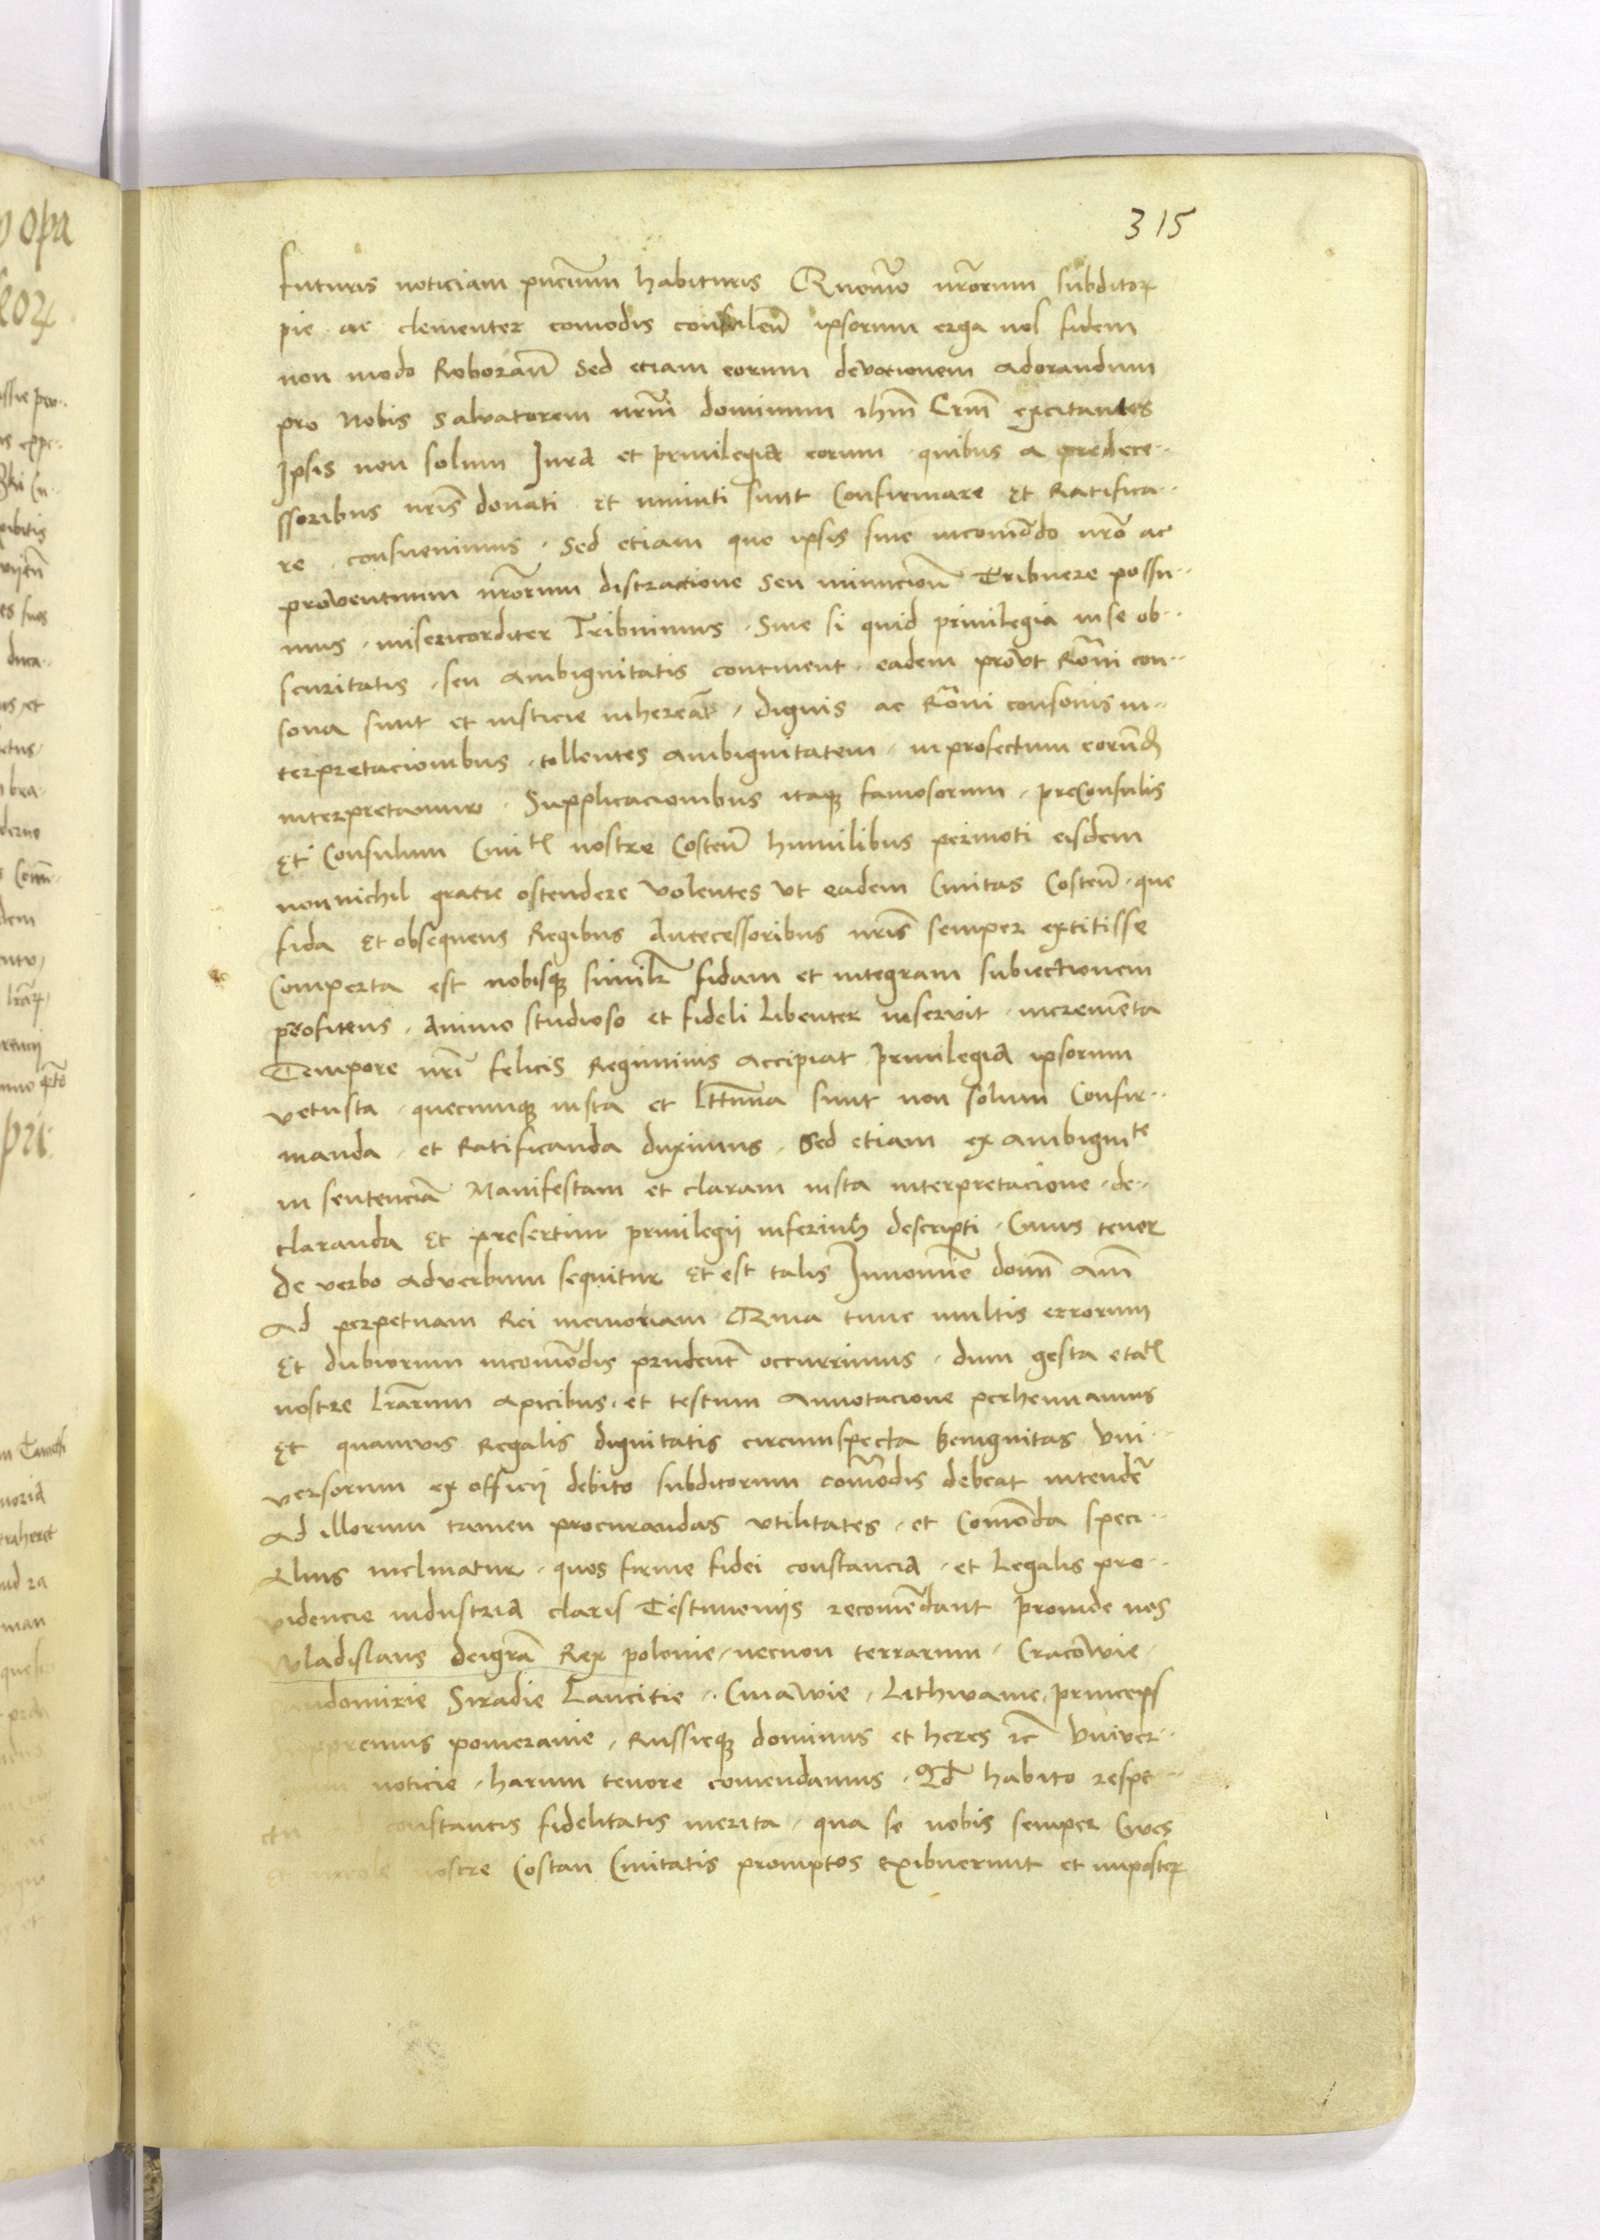 315
futuris noticiam pñcium habituris Quomo nrorum subditor
pie ac clementer comodis consulen ipsorum erga nos fidem
non modo Roboran sed etiam eorum devotionem adorandum
pro nobis salvatorem nrm dominum ihm Crm excitantes
Ipsis non solum Jura et privilegia eorum quibus a predece..
ssoribus nris donati et muniti sunt Confirmare et Ratifica..
re consuevimus. Sed etiam que ipsis sine incomodo nro ac
proventuum nrorum distractione seu minucion Tribuere possu..
mus misericorditer Tribuimus. Sive si quid privilegia in se ob..
scuritatis seu ambiguitatis continent eadem prout Roni con..
sona sunt et iusticie inhereat, dignis ac Roni consonis in..
terpretacionibus tollentes ambiguitatem in profectum eorund
interpretamur. Supplicacionibus itaq famosorum preconsulis
et Consulum Civitatis nostre Costen humilibus permoti eisdem
nonnichil gratie ostendere volentes ut eadem Civitas Costen que
fida et obsequens Regibus Antecessoribus nris semper extitisse
Comperta est nobisq similr fidam et integram subiectionem
profitens. Animo studioso et fideli libenter inservit incrementa
Tempore nri felicis Regiminis accipiat privilegia ipsorum
vetusta quecumq iusta et lttima sunt non solum Confir..
manda et Ratificanda duximus. Sed etiam ex ambiguite
in sentencia Manifestam et claram iusta interpretacione de..
claranda et presertim privilegii inferius descripti. Cuius tenor
de verbo adverbum sequitur et est talis Innomie domi Am
Ad perpetuam Rei memoriam Quia tunc multis errorum
et dubiorum incomodis prudent occurrimus dum gesta etat
nostre lrarum apicibus et testium Annotacione perhennamus
et quamvis Regalis dignitatis circumspecta benignitas uni..
versorum ex officii debito subditorum comodis debeat intender
Ad illorum tamen procurandas utilitates et comoda speci..
alius inclinatur quos firme fidei constancia et Legalis pro..
videncie industria claris Testimoniis recomendant proinde nos
Wladislaus deigra Rex polonie necnon terrarum Cracowie
andomirie Siradie Lancitie. Cuiawie, Lithwanie princeps
ppremus pomeranie, Russieq dominus et heres rc Univer..
noticie harum tenore comendamus. Qd habito respe..
ctu constantis fidelitatis merita qua se nobis semper Cives
et nostre Costan Civitatis promptos exibuerunt et imposter